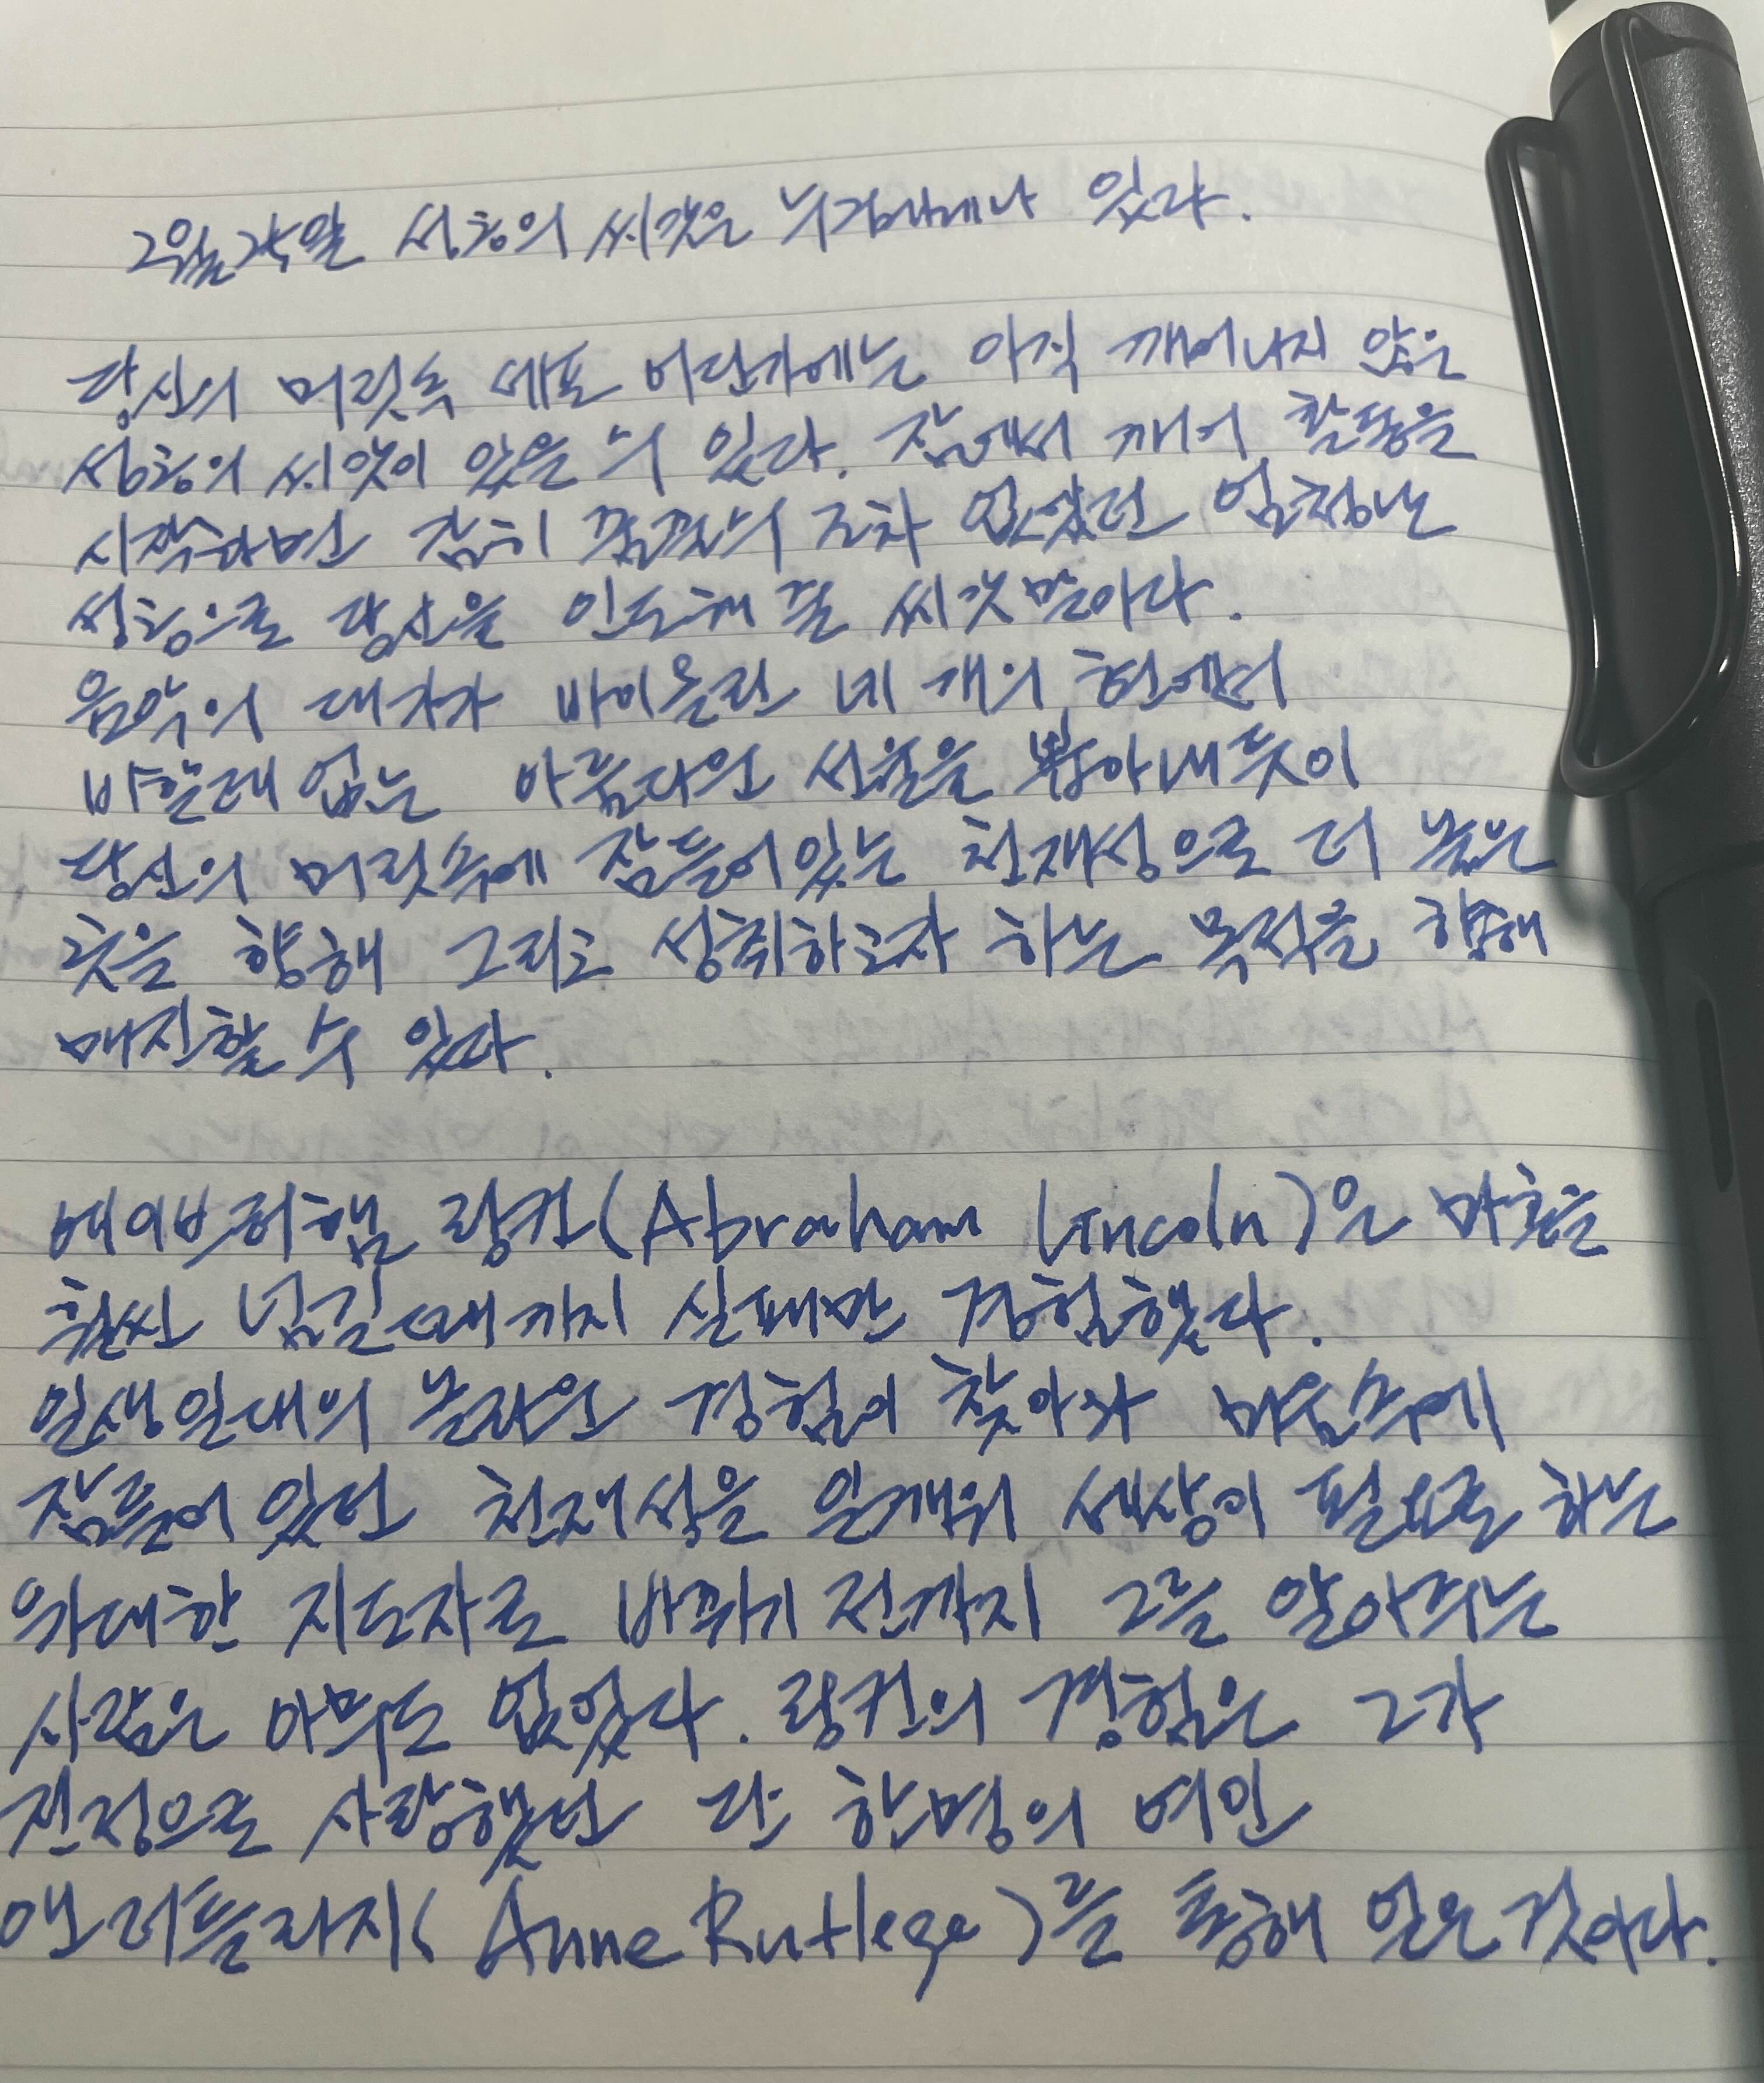 2월 24일 성공의 씨앗은 누구에게나 있다.
당신의 머릿속 세포 어딘가에는 아직 깨어나지 않은
성공의 씨앗이 있을 수 있다. 잠에서 깨어 활동을
시작하면 감히 꿈꿀 수 조차 없었던 엄청난
성공으로 당신을 인도해 줄 씨앗 말이다.
음악의 대가가 바이올린 네 개의 현에서
비할데 없는 아름다운 선율을 뽑아내듯이
당신의 머릿속에 잠들어있는 천재성으로 더 높은
곳을 향해 그리고 성취하고자 하는 목적을 향해
매진할 수 있다.
에이브러햄 링컨(Abraham Lincoln)은 마흔을
훨씬 넘길때까지 실패만 경험했다.
일생일대의 놀라운 경험이 찾아와 마음속에
잠들어 있던 천재성을 일깨워 세상이 필요로 하는
위대한 지도자로 바뀌기 전까지 그를 알아주는
사람은 아무도 없었다. 링컨의 경험은 그가
진정으로 사랑했던 단 한명의 여인
앤 러틀리지(Anne Rutlege)를 통해 얻은 것이다.